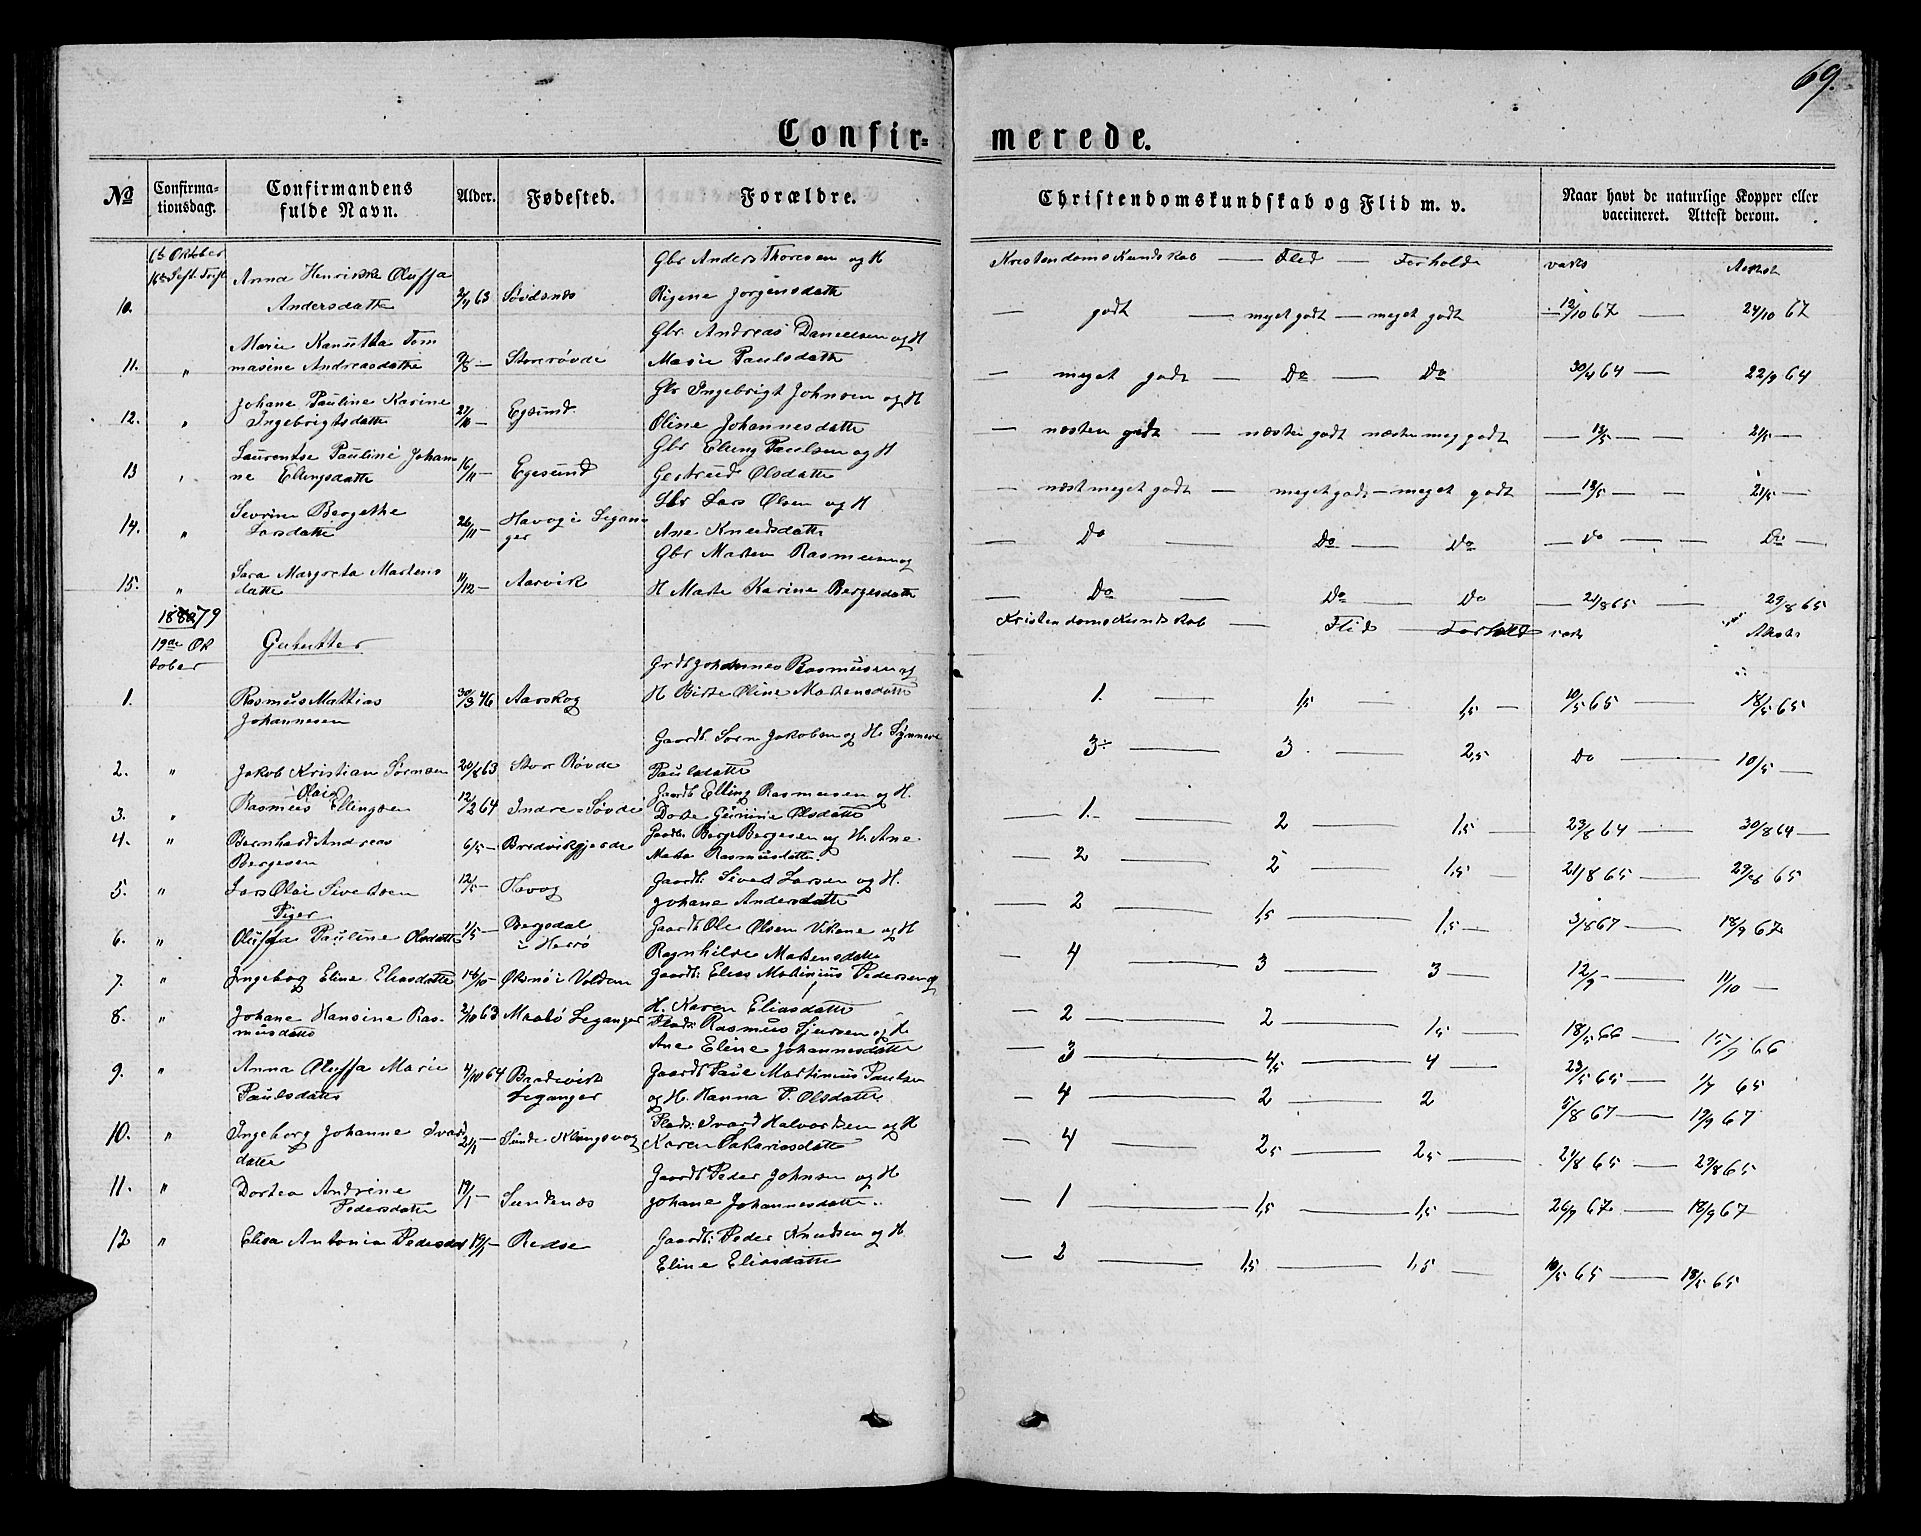 69.
Confir=
merede.
No
Confirma-
tionsdag.
Confirmandens
fulde Navn.
Alder.
Fødested.
Forældre.
Christendomskundskab og Flid m. v.
Naar havt de naturlige Kopper eller
vaccineret. Attest derom.
Oktober
Kristendoms Kundskab — Flid — Forholde vaks Attest
10. Anna Henrikke Oluffa
Andersdatte 2/7 63 Søvdsnæs
Gbr Anders Thoresen og H
Rigene Jorgensdatte
— godt — meget godt — meget godt — 12/10 67 — 24/10 67
11. " Marie Kanutta Tom
masine Andreasdatte 9/8 — Storesøvde
Gbr Andreas Danielsen og H
Marie Paulsdatte
— meget godt — Do — Do 30/4 64 — 22/9 64
12. " Johane Pauline Karine
Ingebrigtsdatte 27/10 — Egsund
Gbr Ingebrigt Johnsen og H
Oline Johannesdatte
— næsten godt — næsten godt næsten meg godt — 13/5 — — 21/5 —
13 " Laurentse Pauline Johan
ne Ellingsdatte 16/11 — Egesund
Gbr Elling Paulsen og H
Gertrud Olsdatte
— næst meget godt — meget godt — meget godt — 13/5 — — 21/5 —
14. " Sevrine Bergethe
Larsdatte 26/11 — Havog i Legan
ger
Gbr Lars Olsen og H
Ane Knudsdatte
— Do — Do — Do — Do — — Do —
15. " Sara Margreta Martens
datte 11/12 — Aarvik
Gbr Marten Rasmusen og
H Marte Karine Bergesdatte
— Do — Do — Do — 21/8 65 — 29/8 65
1879
19de Ok
tober
Gututter
Kristendoms Kundskab — Flid — Forhold vaks Attest
1. Rasmus Mattias
Johannesen 30/3 46 Aarskog
Grdb Johannes Rasmusen og
H Birte Oline Martensdatte
1. — 1,5 — 1,5 — 10/5 65 — 18/5 65
2. " Jakob Kristian Sørnsen 20/8 63 Stor Røvde
Gaardb. Sørn Jakobsen og H. Synneve
Paulsdatte
3 — 3 — 2,5 Do — 10/5 —
3. " Rasmus Olai Ellingsen 12/2 64 Indre = Søvde
Gaardb Elling Rasmusen og H.
Dorte Gurine Olsdatte
1. — 2 — 1,5 — 23/8 64 — 30/8 64 —
4. " Bernhard Andreas
Bergesen 6/5 — Bredvikgjerde
Gaardb. Berge Bergesen og H. Ane
Marta Rasmusdatte.
— 2 — 2 — 1,5 — 21/8 65 — 29/8 65
5. " Lars Olai Sivedsen 12/5 — Havog
Gaardb: Sived Larsen og H.
Johane Andersdatte
— 2 — 1,5 — 1,5 — 3/8 67 — 18/9 67
Piger
6. " Oluffa Pauline Olsdatte 1/5 — Bergsdal
i Herrø
Gaardb Ole Olsen Vikane og H
Ragnhilde Martensdatte
— 4 — 3 — 3 — 12/9 — 11/10 —
7. " Ingeborg Eline Eliasdatte 16/10 — Øksnø i Volden
Gaardb: Elias Matinius Pedersen og
H. Karen Eliasdatte
— 2 — 2 — 1,5 — 18/5 66 — 15/9 66
8. " Johane Hansine Ras-
musdatte 2/10 63 Maabø Leganger
Plads: Rasmus Sjursen og H
Ane Eline Johannesdatte
— 3 — 4,5 — 4 — 23/5 65 — 1/7 65
9. " Anna Oluffa Marie
Paulsdatte 4/10 64 Bredevik
Leganger
Gaardb Paul Martinius Paulsen
og H. Hanna P. Olsdatte
— 4 — 2 — 2 5/8 67 — 12/9 67
10. " Ingeborg Johanne Ivars
datte 2/1 — Sande Klungsvog
Plads: Ivard Halvordsen og H
Karen Sakariasdatte
— 4 — 2,5 — 2,5 — 21/8 65 — 29/8 65
11. " Dortea Andrine
Pedersdatte 19/1 — Sundnæs
Gaardb Peder Johnsen og H
Johane Johannesdatte.
— 1 — 1,5 — 1,5 — 26/9 67 — 18/9 67
12 " Elisa Antonia Pedersdat 19/1 — Redse
Gaardb: Peder Knudsen og H
Eline Eliasdatte
— 2 — 1,5 — 1,5 — 10/5 65 — 18/5 65